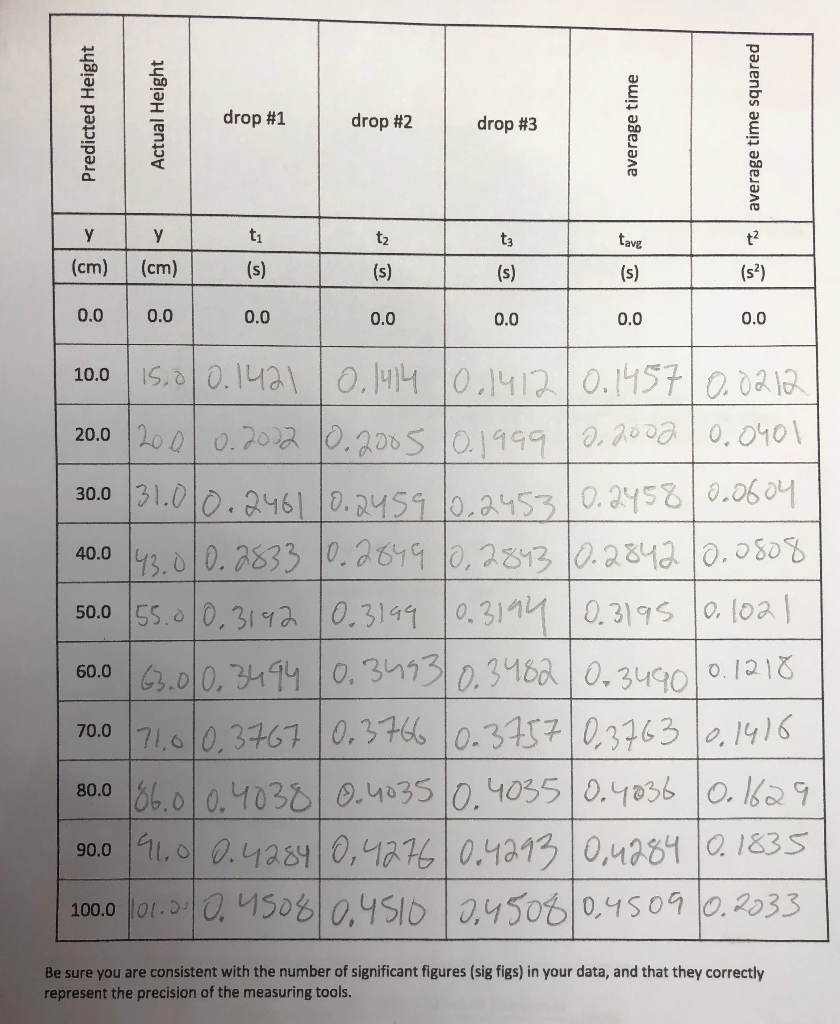 Predicted Height Actual Height drop #1 drop #2 drop #3 average time average time squared
y y t₁ t₂ t₃ tavg t²
(cm) (cm) (s) (s) (s) (s) (s²)
0.0 0.0 0.0 0.0 0.0 0.0 0.0
10.0 15.0 0.1421 0.1414 0.1412 0.1457 0.0212
20.0 20.0 0.2002 0.2005 0.1999 0.2002 0.0401
30.0 31.0 0.2461 0.2459 0.2453 0.2458 0.0604
40.0 43.0 0.2833 0.2849 0.2843 0.2842 0.0808
50.0 55.0 0.3192 0.3199 0.3194 0.3195 0.1021
60.0 63.0 0.3494 0.3493 0.3482 0.3490 0.1218
70.0 71.0 0.3767 0.3766 0.3757 0.3763 0.1416
80.0 86.0 0.4038 0.4035 0.4035 0.4036 0.1629
90.0 91.0 0.4284 0.4276 0.4293 0.4284 0.1835
100.0 101.0 0.4508 0.4510 0.4508 0.4509 0.2033
Be sure you are consistent with the number of significant figures (sig figs) in your data, and that they correctly
represent the precision of the measuring tools.